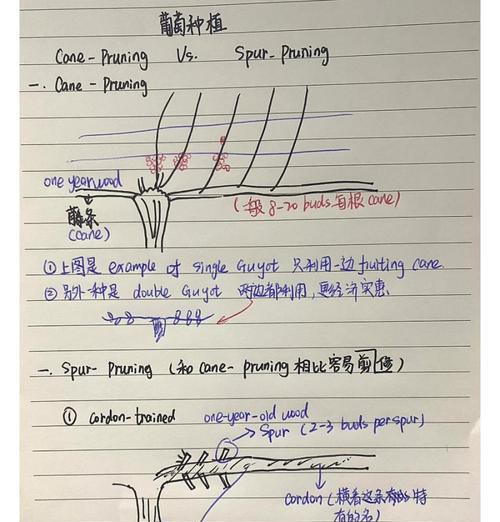 葡萄种植
Cane-Pruning Vs. Spur-Pruning
一. Cane-Pruning
one year wood
藤条
(cane)
(一般8-20 buds 每根cane)
① 上图是 example of single Guyot 只利用一边fruiting cane.
② 另外一种是 double Guyot 两边都利用,更经济实惠.
一. Spur-Pruning (和 cane-pruning 相比容易剪修)
① cordon-trained one-year-old wood
Spur (2-3 buds per spur)
cordon (横着这条有特
有的名)